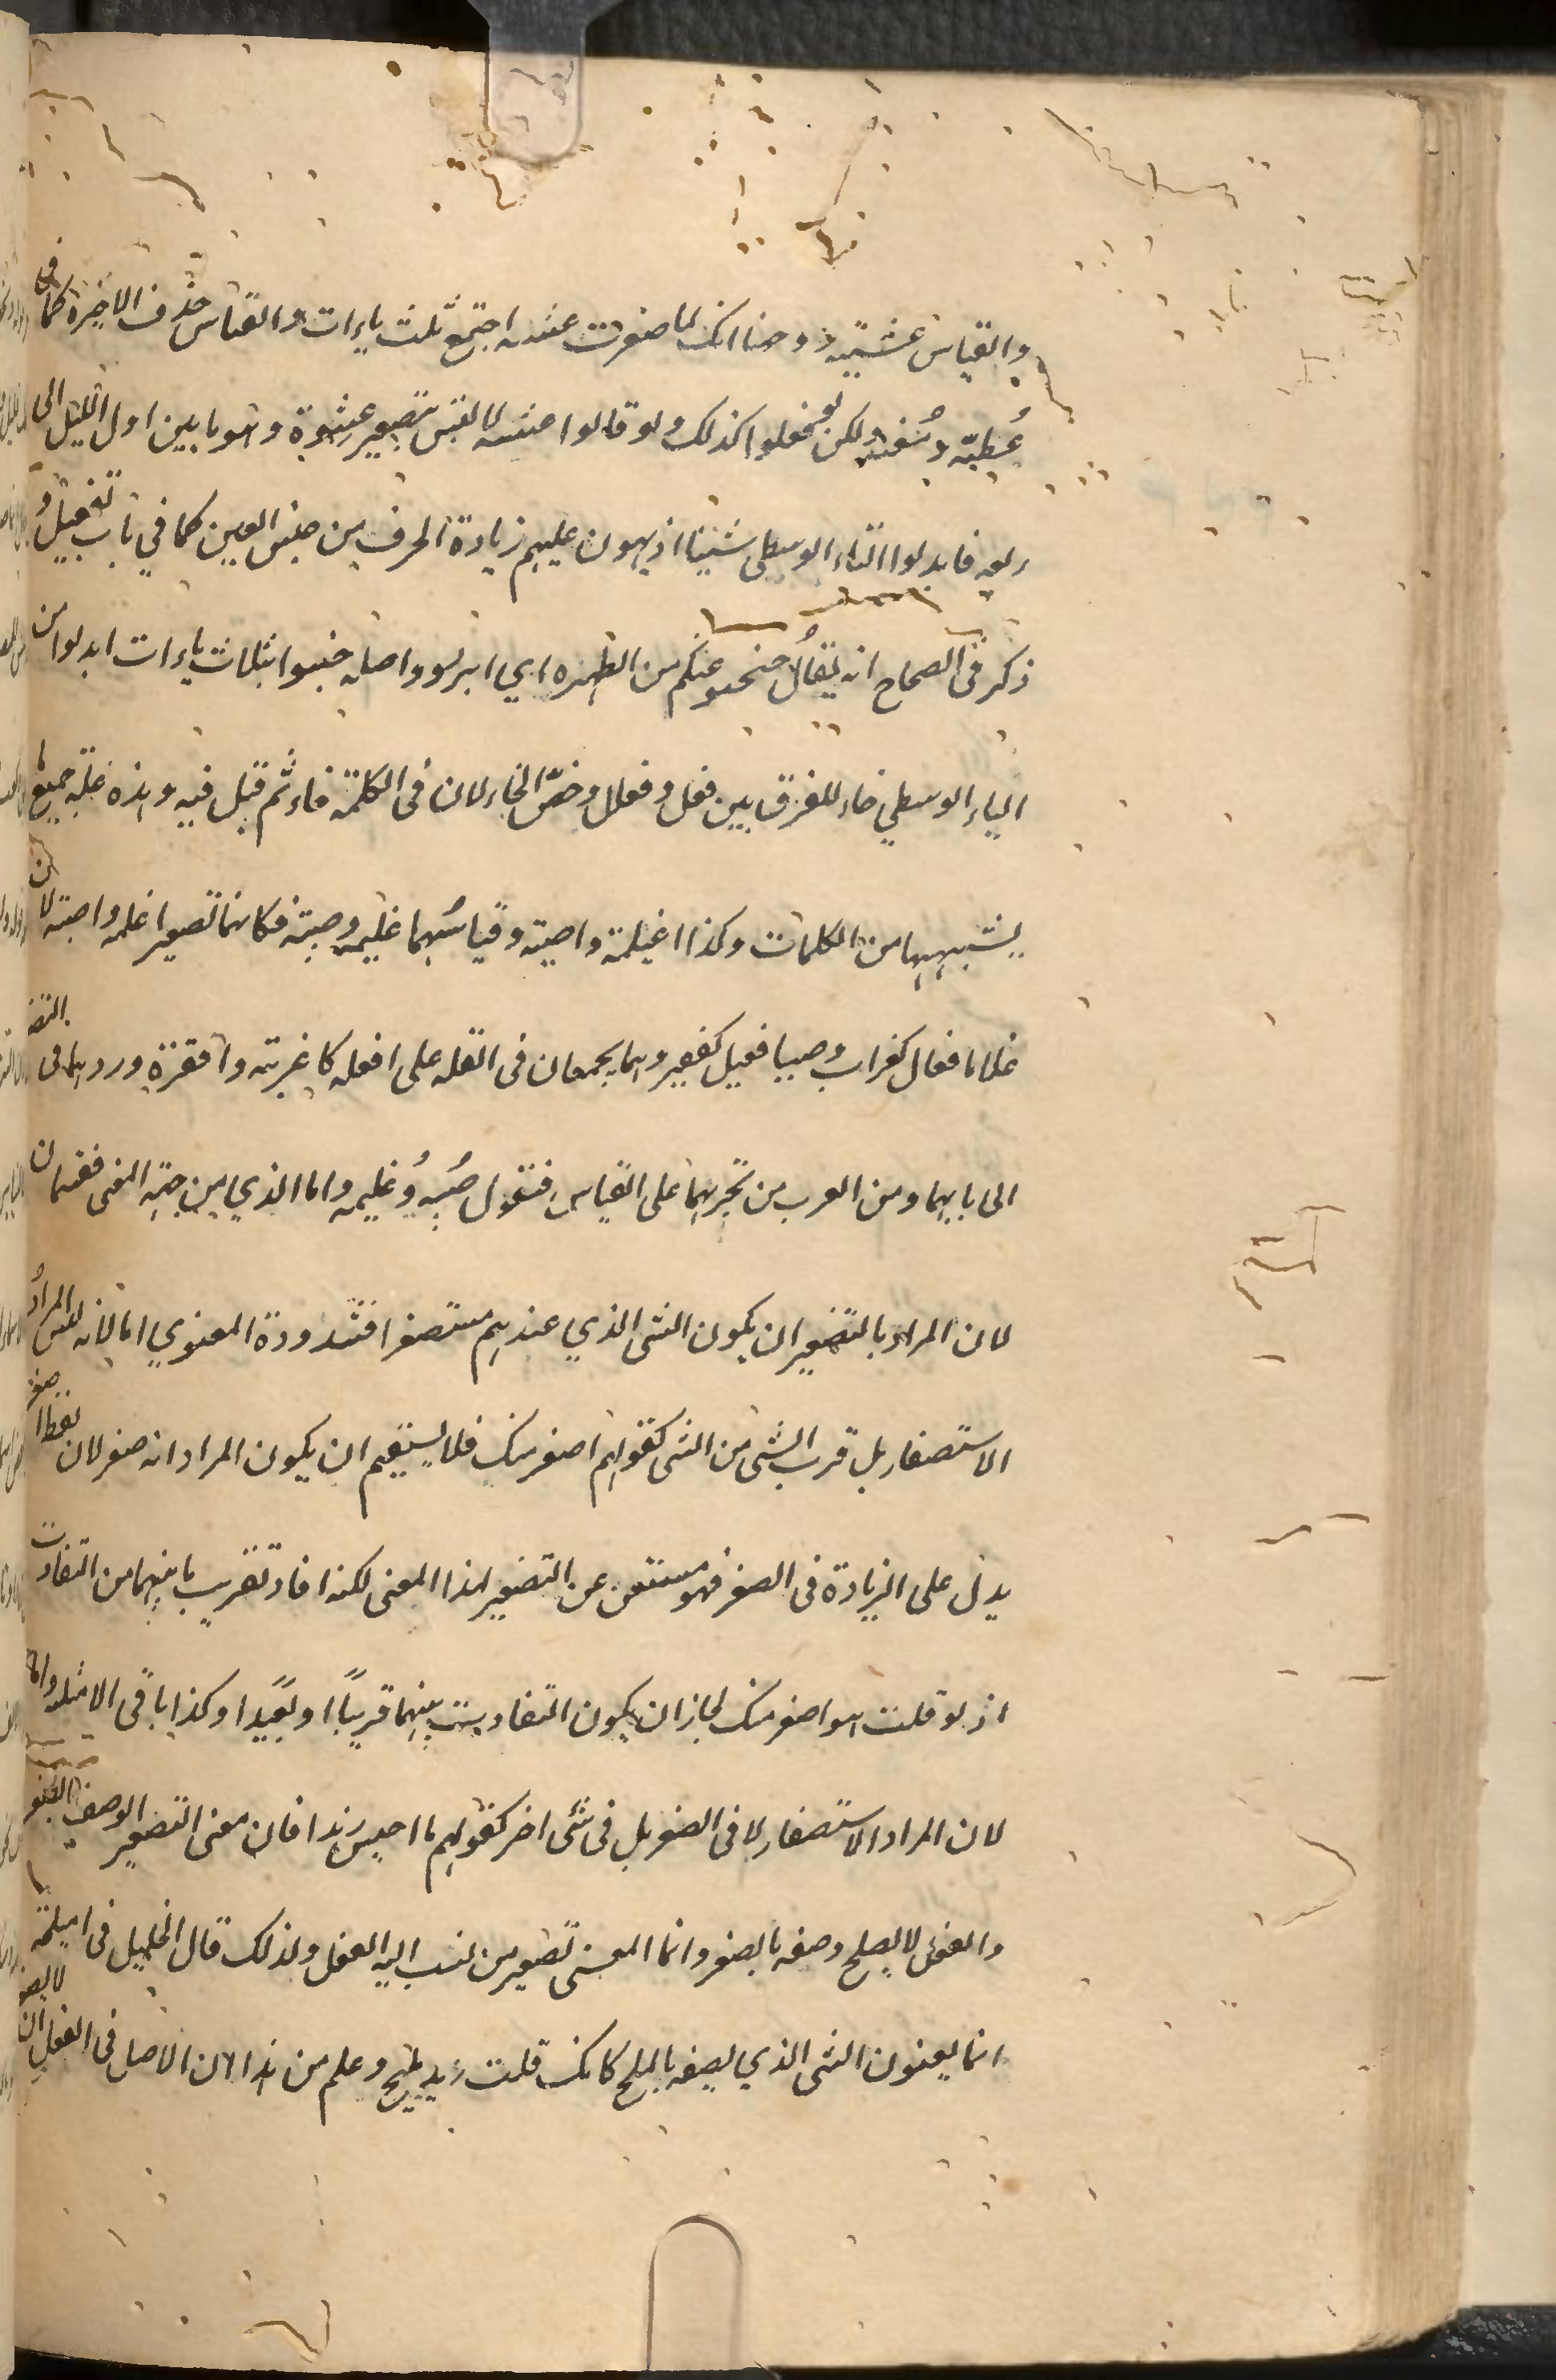 والقياس عشيّية ووجهنا انك لما صغرت عشية اجتمع ثلث ياءات والقياس حذف الاخيرة كما في
عُطيّة ولكن لم يجعلوا كذلك ولو قالوا عشية لا لتبس بتصغير عشوة وهو ما بين اول الليل الى
ربعه فابدلوا الياء الوسطى شينا اذ يهون عليهم زيادة الحرف من جنس العين كما في باب تفعيل و
ذكر فى الصحاح انه يقال خبخبوا عنكم من الظهيرة اي ابردوا واصله خببوا بثلاث باءات ابدلوا من
الباء الوسطى خاء للفرق بين فعل وفعلل وخصّ الخاء لان فى الكلمة خاء ثم قيل فيه وهذه علة جميع ما
يشبهها من الكلمات وكذا اغيلمة واصيبية وقياسُهما غليمة وصبية فكانهما تصغير اغلمة واصبية لان
غلاما فعال كغراب وصبيا فعيل كقفيز وهما يجمعان فى القلة على افعلة كاغربة واقفزة ورد هما فى التصـ
الى بابهما ومن العرب من يجريهما على القياس فتقول صُبية وغليمة واما الذي من جهة المعنى فقسمان
لان المراد بالتصغير ان يكون الشى الذي عندهم مستصغرا فشذوذة المعنوي اما لانه ليس المرادُ
الاستصغار بل قرب الشى من الشى كقولهم اصغر منك فلا يستقيم ان يكون المراد انه صغر لان لفظ اصغر
يدل على الزيادة فى الصغر فهو مستغن عن التصغير لهذا المعنى لكنه افاد تقريب ما بينهما من التفاوت
اذ لو قلت هو اصغر منك لجاز ان يكون التفاوت بينهما قريبًا او بعيدًا وكذا باقى الامثلة واما
لان المراد الاستصغار لا فى الصغر بل فى شى اخر كقولهم ما احيسن زيدا فان معنى التصغير الوصف بالصغر
والفعل لا يصلح وصفه بالصغر وانما المعنى تصغير من نسب اليه الفعل ولذلك قال الخليل فى اميلحة
انما يعنون الشى الذي يصفه بالملح كانك قلت زيد مليح وعلم من هذا لان الاصل فى الفعل ان لا يصغر